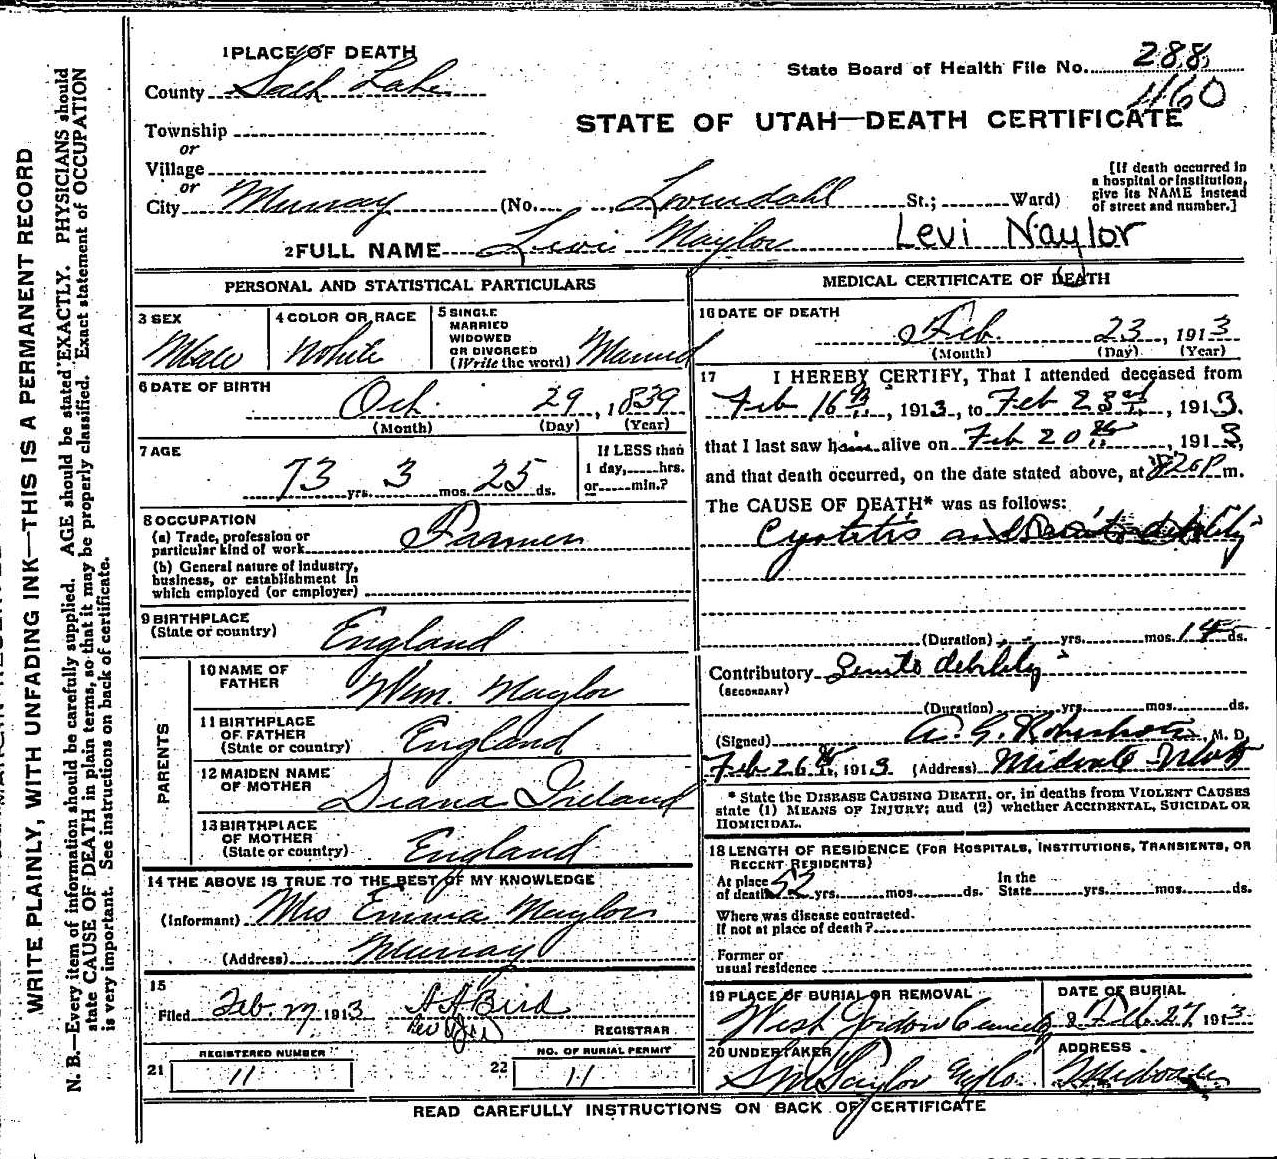 1 PLACE OF DEATH
State Board of Health File No. 288
1160
County Salt Lake
STATE OF UTAH—DEATH CERTIFICATE
Township
or
Village
or
City Murray (No. , Lovendahl St.; Ward)
[If death occurred in
a hospital or institution,
give its NAME instead
of street and number.]
2 FULL NAME Levi Naylor Levi Naylor
PERSONAL AND STATISTICAL PARTICULARS
3 SEX
Male
4 COLOR OR RACE
White
5 SINGLE
MARRIED
WIDOWED
OR DIVORCED
(Write the word) Married
6 DATE OF BIRTH
Oct. 29, 1839
(Month) (Day) (Year)
7 AGE
73 yrs. 3 mos. 25 ds.
If LESS than
1 day, hrs.
or min.?
8 OCCUPATION
(a) Trade, profession or
particular kind of work Farmer
(b) General nature of industry,
business, or establishment in
which employed (or employer)
9 BIRTHPLACE
(State or country) England
PARENTS
10 NAME OF
FATHER Wm. Naylor
11 BIRTHPLACE
OF FATHER
(State or country) England
12 MAIDEN NAME
OF MOTHER Diana Ireland
13 BIRTHPLACE
OF MOTHER
(State or country) England
14 THE ABOVE IS TRUE TO THE BEST OF MY KNOWLEDGE
(Informant) Mrs Emma Naylor
(Address) Murray
15
Filed Feb. 27 1913 A A Bird
REGISTRAR
REGISTERED NUMBER
21 11
NO. OF BURIAL PERMIT
22 11
MEDICAL CERTIFICATE OF DEATH
16 DATE OF DEATH
Feb. 23, 1913
(Month) (Day) (Year)
17 I HEREBY CERTIFY, That I attended deceased from
Feb 16th, 1913, to Feb 23rd, 1913.
that I last saw him alive on Feb 20th, 1913,
and that death occurred, on the date stated above, at 820 P m.
The CAUSE OF DEATH* was as follows:
Cystitis and debility
(Duration) yrs. mos. 14 ds.
Contributory Senile debility
(SECONDARY)
(Duration) yrs. mos. ds.
(Signed) A. G. Robertson, M. D.
Feb 26th, 1913 (Address) Midvale Utah
* State the DISEASE CAUSING DEATH, or, in deaths from VIOLENT CAUSES
state (1) MEANS OF INJURY; and (2) whether ACCIDENTAL, SUICIDAL OR
HOMICIDAL.
18 LENGTH OF RESIDENCE (FOR HOSPITALS, INSTITUTIONS, TRANSIENTS, OR
RECENT RESIDENTS)
At place
of death 52 yrs. mos. ds. In the
State yrs. mos. ds.
Where was disease contracted.
If not at place of death?
Former or
usual residence
19 PLACE OF BURIAL OR REMOVAL
West Jordan Cemetery
DATE OF BURIAL
Feb. 27 1913
20 UNDERTAKER
S M Taylor
ADDRESS
Midvale
READ CAREFULLY INSTRUCTIONS ON BACK OF CERTIFICATE
WRITE PLAINLY, WITH UNFADING INK—THIS IS A PERMANENT RECORD
N. B.—Every item of information should be carefully supplied. AGE should be stated EXACTLY. PHYSICIANS should
state CAUSE OF DEATH in plain terms, so that it may be properly classified. Exact statement of OCCUPATION
is very important. See instructions on back of certificate.